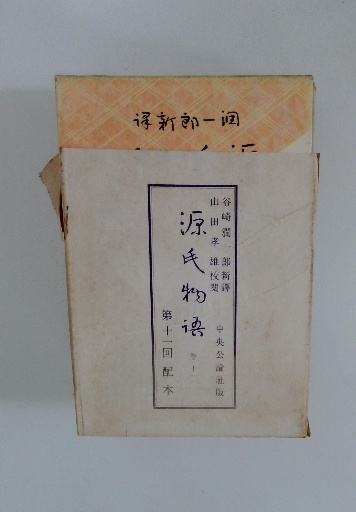 潤一郎新譯
谷崎潤一郎新譯
山田孝雄校閲
源氏物語
巻十一
中央公論社版
第十一回配本